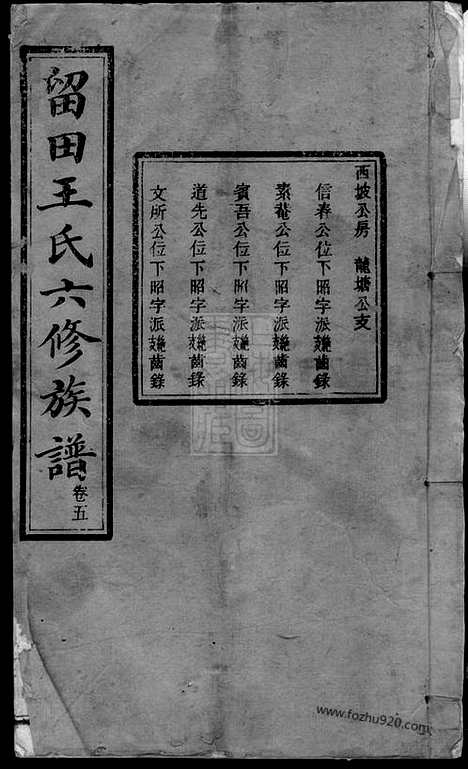 留田王氏六修族譜 卷五
西坡公房 龍塘公支
信春公位下昭字派繼支齒錄
素菴公位下昭字派繼支齒錄
賓吾公位下昭字派繼支齒錄
道先公位下昭字派繼支齒錄
文所公位下昭字派繼支齒錄
www.fozhu920.com